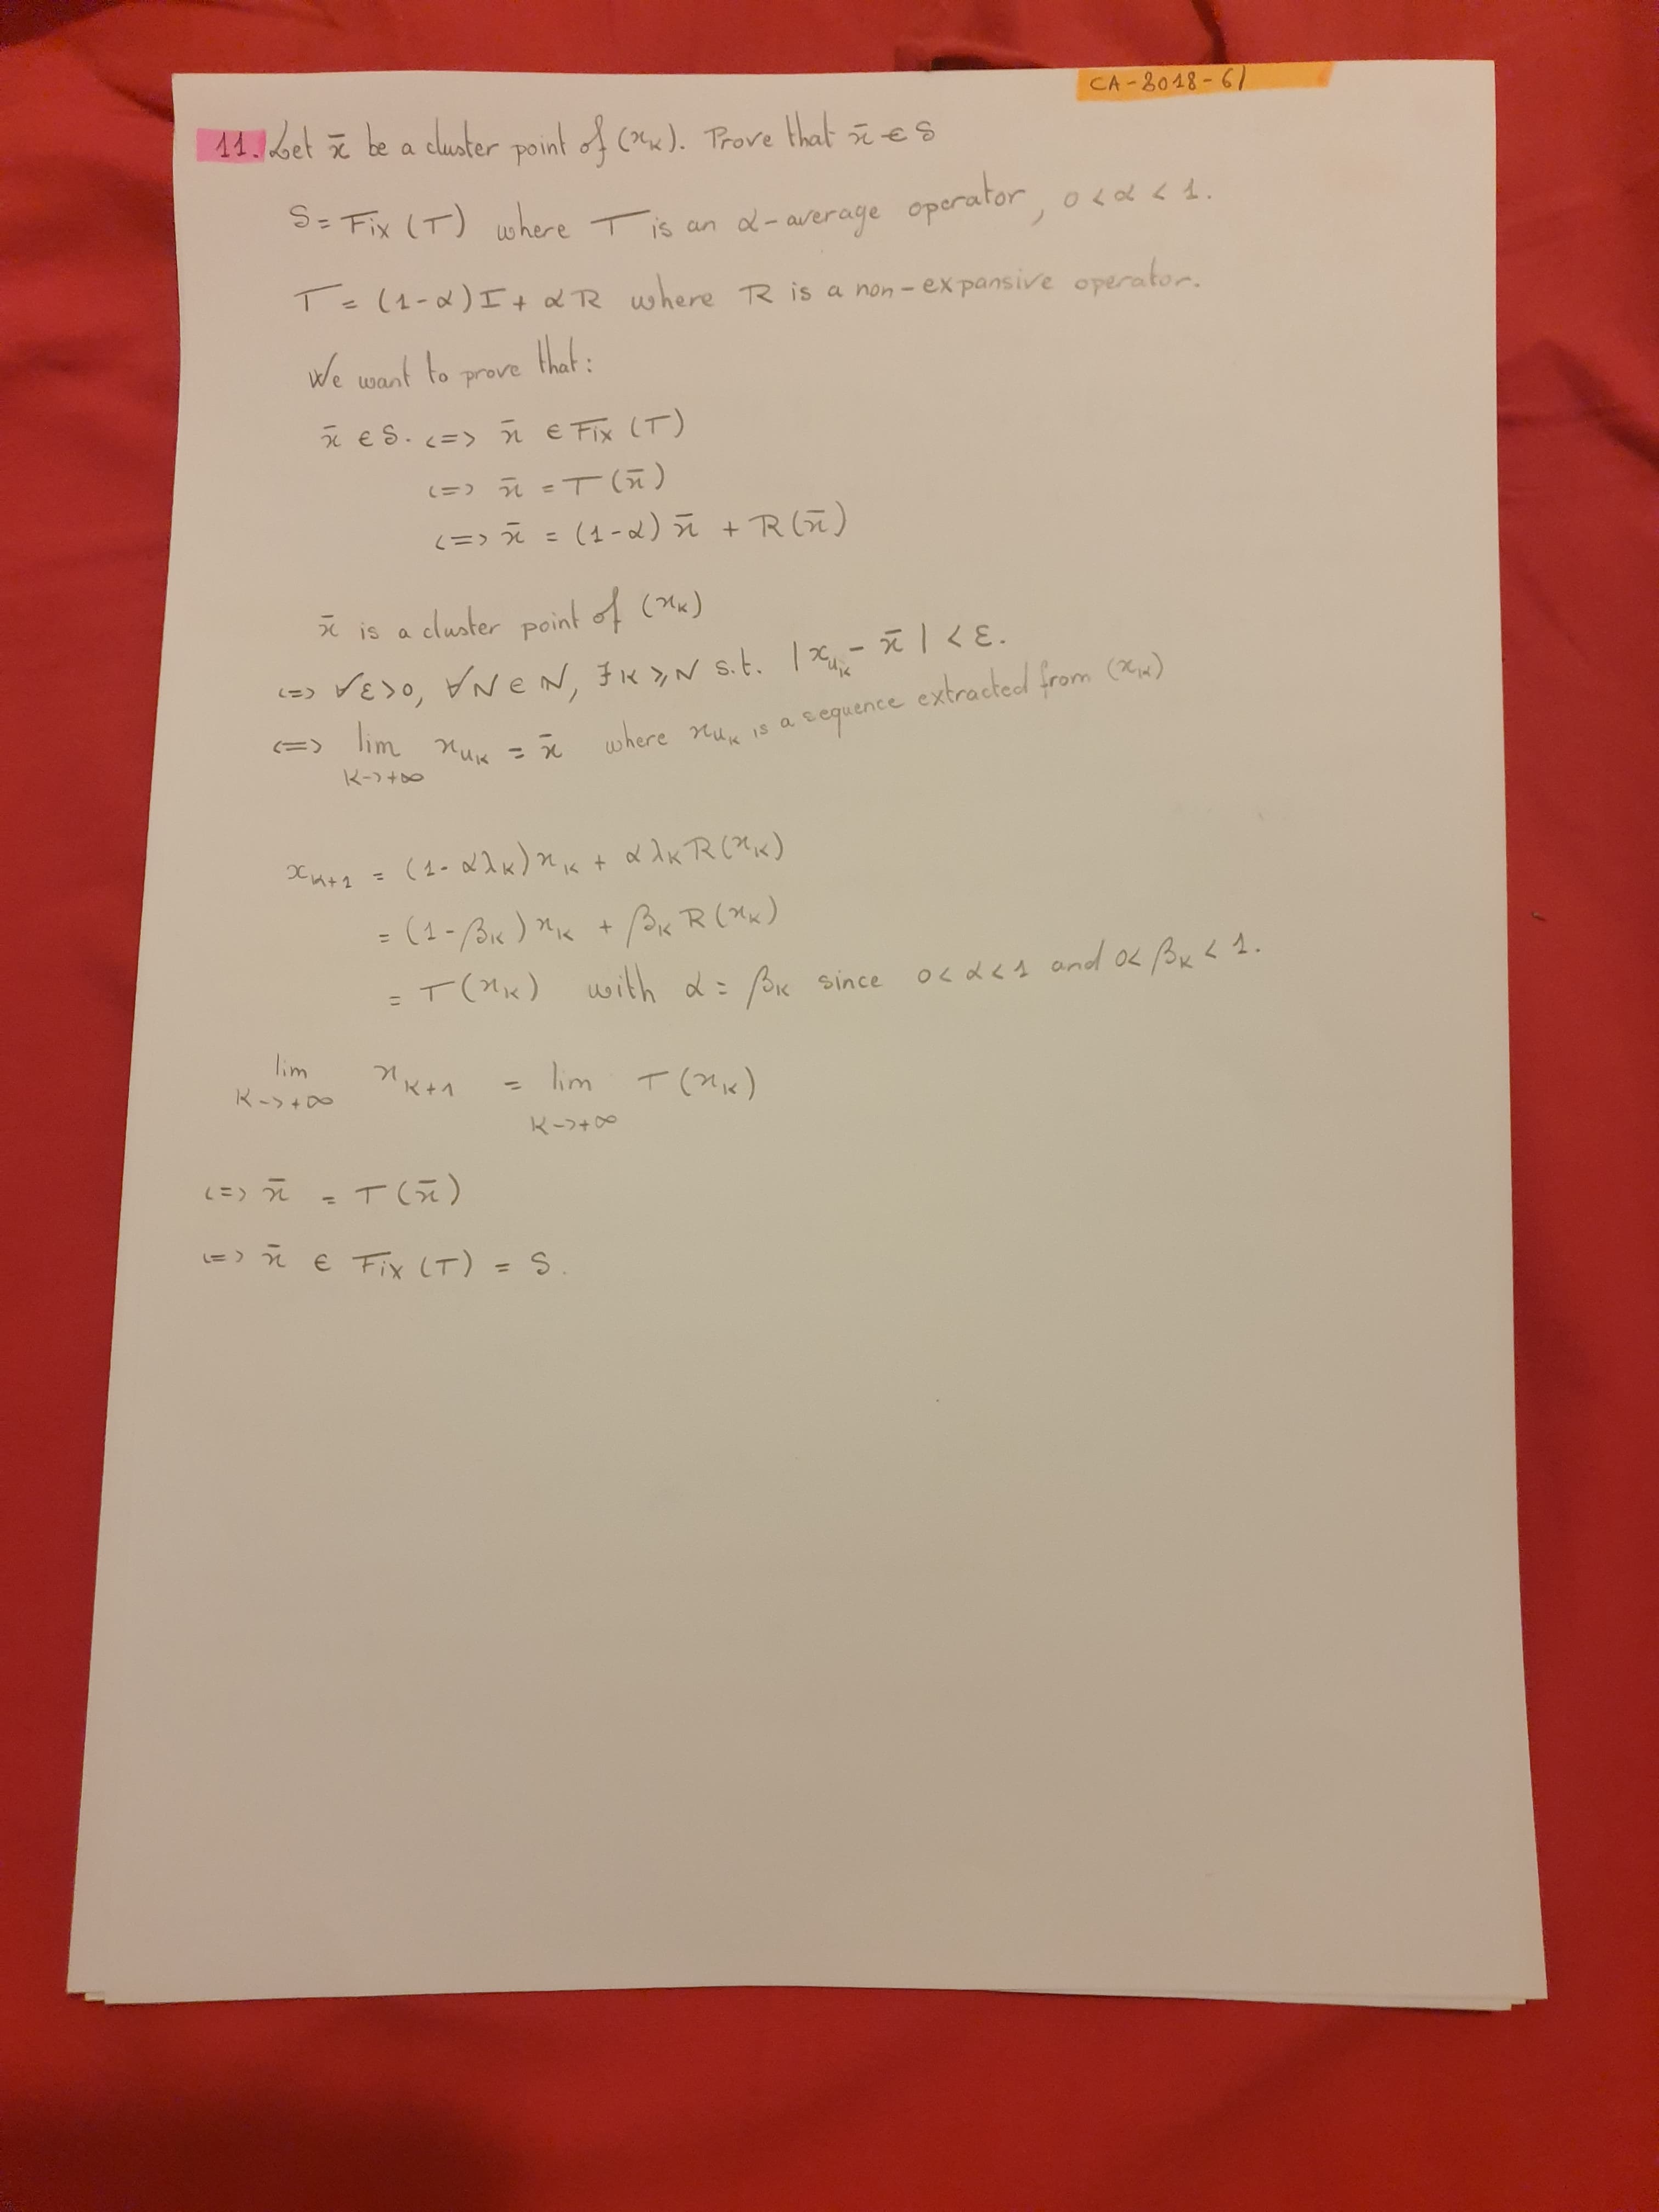 CA-2018-6/
11. Let x̄ be a cluster point of (xₖ). Prove that x̄ ∈ S
S = Fix (T) where T is an α-average operator, 0 < α < 1.
T = (1-α) I + α R where R is a non-expansive operator.
We want to prove that:
x̄ ∈ S. <=> x̄ ∈ Fix (T)
<=> x̄ = T (x̄)
<=> x̄ = (1-α) x̄ + R (x̄)
x̄ is a cluster point of (xₖ)
<=> ∀ε>0, ∀N ∈ ℕ, ∃ K ⩾ N s.t. | x_{u_K} - x̄ | < ε.
<=> lim x_{u_K} = x̄ where x_{u_K} is a sequence extracted from (x_K)
K->+∞
x_{K+1} = (1-αλ_K) x_K + αλ_K R (x_K)
= (1-β_K) x_K + β_K R (x_K)
= T (x_K) with α = β_K since 0 < α < 1 and 0 < β_K < 1.
lim x_{K+1} = lim T (x_K)
K->+∞ K->+∞
<=> x̄ = T (x̄)
<=> x̄ ∈ Fix (T) = S.